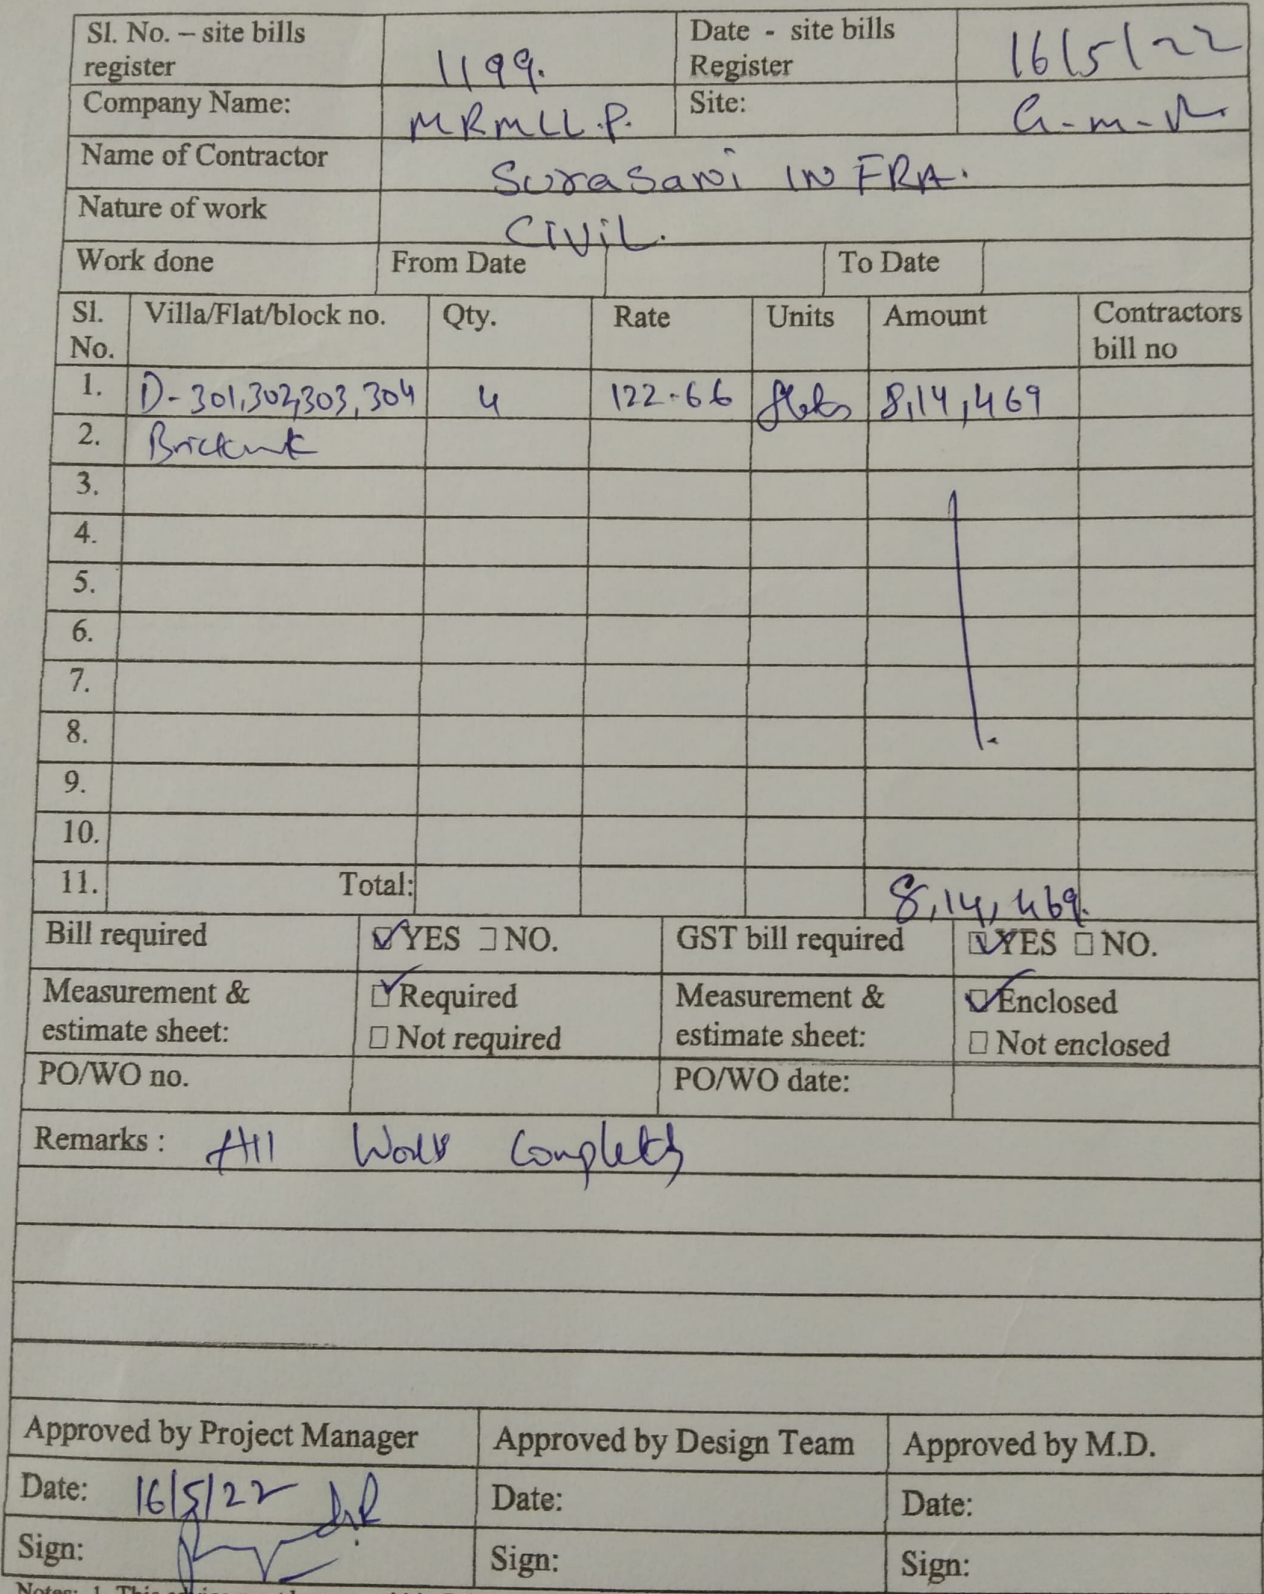 Sl. No. – site bills register 1199. Date - site bills Register 16/5/22
Company Name: MRMLL.P. Site: G-m-R
Name of Contractor Surasani INFRA.
Nature of work CIVIL.
Work done From Date To Date
Sl. No. Villa/Flat/block no. Qty. Rate Units Amount Contractors bill no
1. D-301,302,303,304 4 122-66 flats 8,14,469
2. Brickwork
3.
4.
5.
6.
7.
8.
9.
10.
11. Total: 8,14,469.
Bill required YES NO. GST bill required YES NO.
Measurement & estimate sheet: Required Measurement & estimate sheet: Enclosed
Not required Not enclosed
PO/WO no. PO/WO date:
Remarks : All Work Completed
Approved by Project Manager Approved by Design Team Approved by M.D.
Date: 16/5/22 Date: Date:
Sign: Sign: Sign:
Notes: 1. This